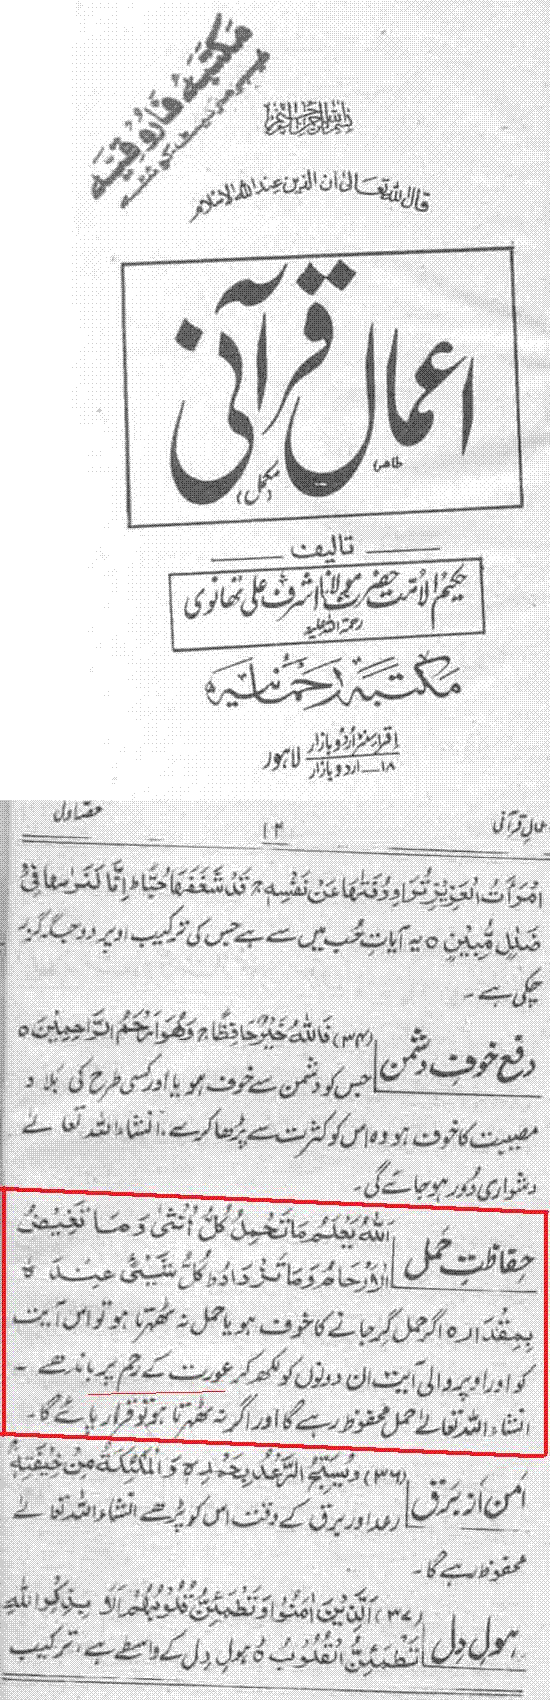 مکتبہ فاروقیہ
بسم اللہ الرحمن الرحیم
قال اللہ تعالیٰ ان الدین عند اللہ الاسلام
اعمال قرآنی
(مکمل)
تالیف
حکیم الامت حضرت مولانا اشرف علی تھانوی
رحمۃ اللہ علیہ
مکتبہ رحمانیہ
اقراء سنٹر اردو بازار
۱۸۔ اردو بازار لاہور
اعمال قرآنی ۱۴ حصہ اول
امْرَاَتُ الْعَزِیْزِ تُرَاوِدُ فَتٰهَا عَنْ نَّفْسِهٖ ج قَدْ شَغَفَهَا حُبًّا ط اِنَّا لَنَرٰىهَا فِیْ
ضَلٰلٍ مُّبِیْنٍ ہ یہ آیات حُب میں سے ہے جس کی ترکیب اوپر دو جگہ گزر
چکی ہے ۔
دفع خوف دشمن (۳۴) فَاللّٰهُ خَیْرٌ حَافِظًا ج وَّهُوَ اَرْحَمُ الرَّاحِمِیْنَ ہ
جس کو دشمن سے خوف ہو یا اور کسی طرح کی بلا و
مصیبت کا خوف ہو وہ اس کو کثرت سے پڑھا کرے، انشاء اللہ تعالےٰ
دشواری دُور ہو جائے گی ۔
حفاظتِ حمل اَللّٰهُ یَعْلَمُ مَا تَحْمِلُ كُلُّ اُنْثٰى وَمَا تَغِیْضُ
الْاَرْحَامُ وَمَا تَزْدَادُ ط كُلُّ شَیْئٍ عِنْدَهٗ
بِمِقْدَارٍ ہ اگر حمل گر جانے کا خوف ہو یا حمل نہ ٹھہرتا ہو تو اس آیت
کو اور اوپر والی آیت ان دونوں کو لکھ کر عورت کے رحم پر باندھے ۔
انشاء اللہ تعالےٰ حمل محفوظ رہے گا اور اگر نہ ٹھہرتا ہو تو قرار پائے گا ۔
امن از برق (۳۶) وَیُسَبِّحُ الرَّعْدُ بِحَمْدِهٖ وَالْمَلٰٓئِكَةُ مِنْ خِیْفَتِهٖ
رعد اور برق کے وقت اس کو پڑھے انشاء اللہ تعالےٰ
محفوظ رہے گا ۔
ہول دل (۳۷) اَلَّذِیْنَ اٰمَنُوْا وَتَطْمَئِنُّ قُلُوْبُهُمْ اَلَا بِذِكْرِ اللّٰهِ
تَطْمَئِنُّ الْقُلُوْبُ ہ ہول دل کے واسطے ہے، ترکیب